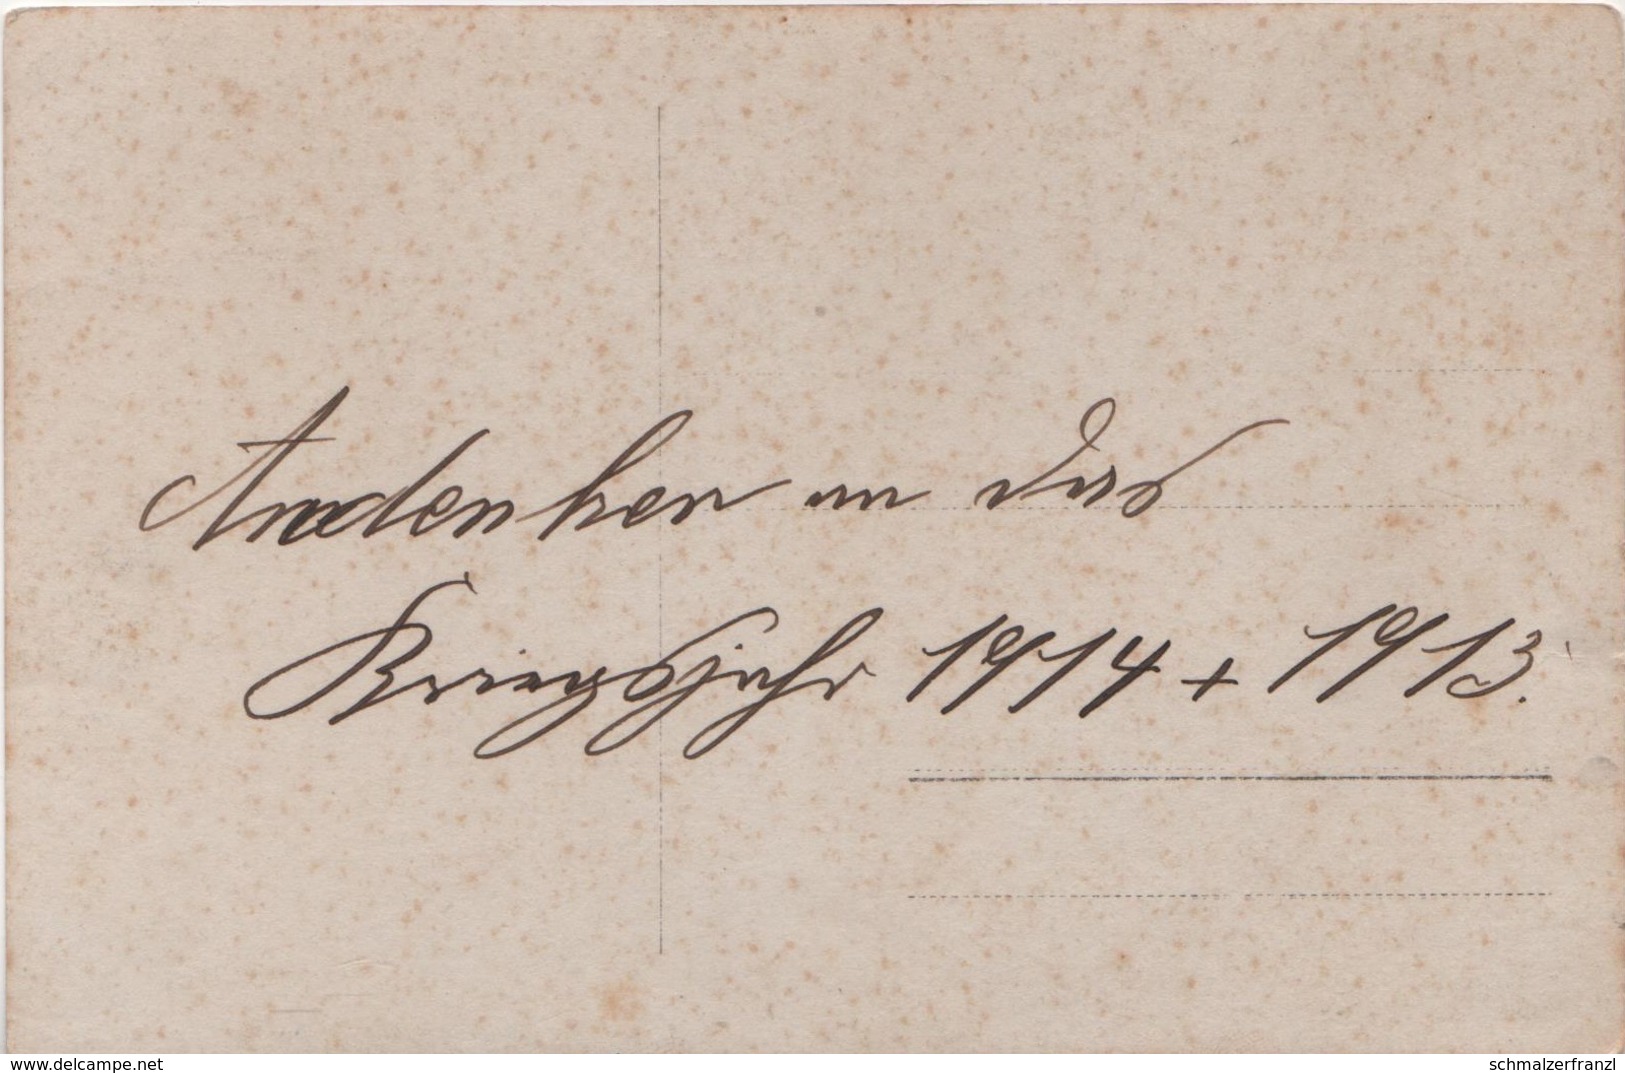 Andenken an das
Kriegsjahr 1914 + 1913.
www.delcampe.net
schmalzerfranzl